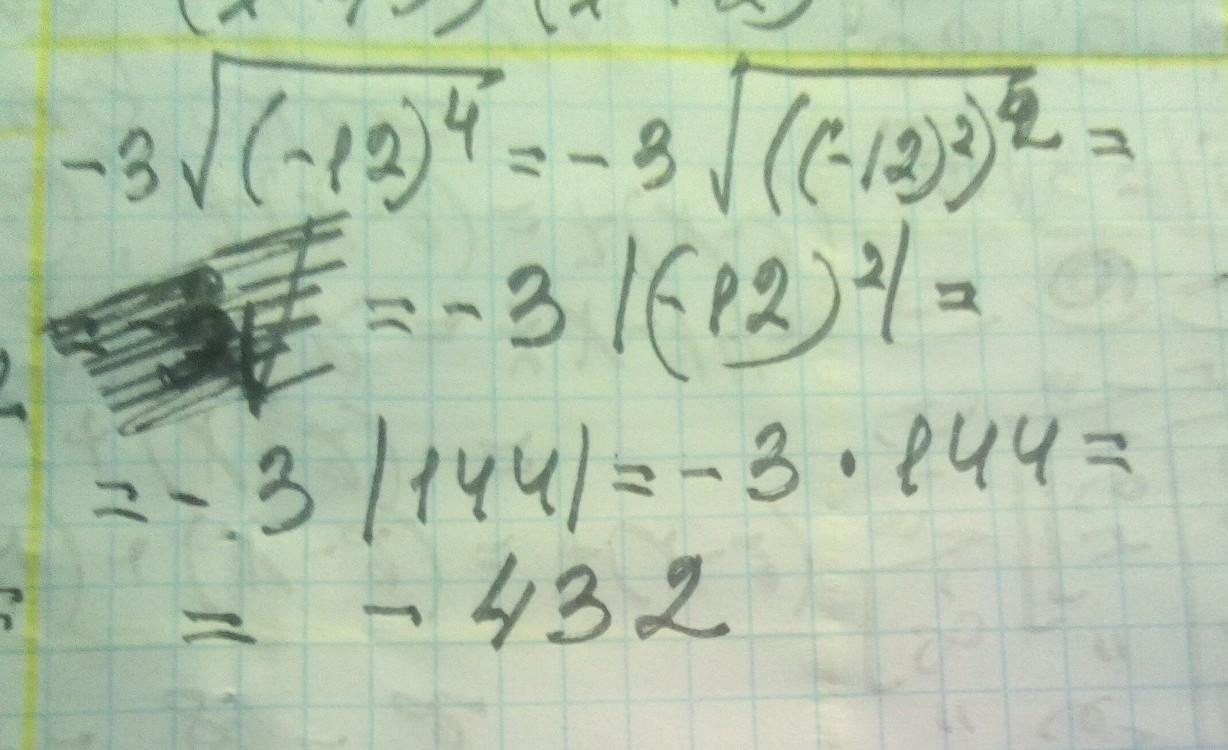 -3√(-12)⁴ = -3√((-12)²)² =
= -3 |(-12)²| =
= -3 |144| = -3 · 144 =
= -432